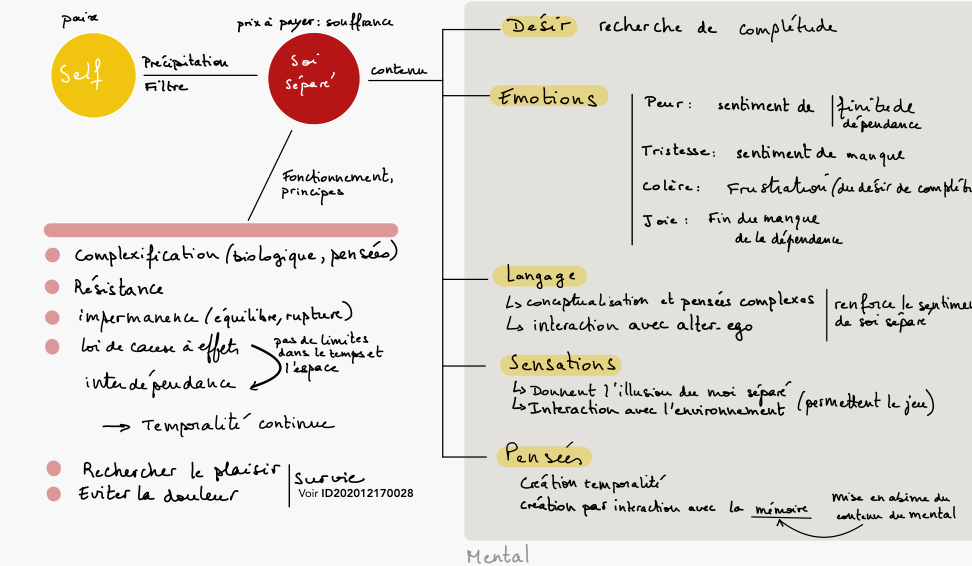 paix
Self
Précipitation
Filtre
prix à payer : souffrance
Soi
séparé
contenu
Fonctionnement,
principes
complexification (biologique, pensées)
Résistance
impermanence (équilibre, rupture)
loi de cause à effet,
interdépendance
pas de limites
dans le temps et
l'espace
→ Temporalité continue
Rechercher le plaisir
Eviter la douleur
Survie
Voir ID202012170028
Désir recherche de complétude
Emotions
Peur : sentiment de finitude
dépendance
Tristesse : sentiment de manque
Colère : Frustration (du désir de complétu
Joie : Fin du manque
de la dépendance
Langage
↳ conceptualisation et pensées complexes
↳ interaction avec alter-ego
renforce le sentimen
de soi séparé
Sensations
↳ Donnent l'illusion du moi séparé
↳ Interaction avec l'environnement (permettent le jeu)
Pensées
Création temporalité
création par interaction avec la mémoire
mise en abîme du
contenu du mental
Mental